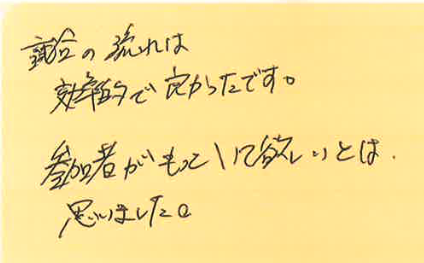 試合の流れは
効率的で良かったです。
参加者がもっといて欲しいとは
思いました。